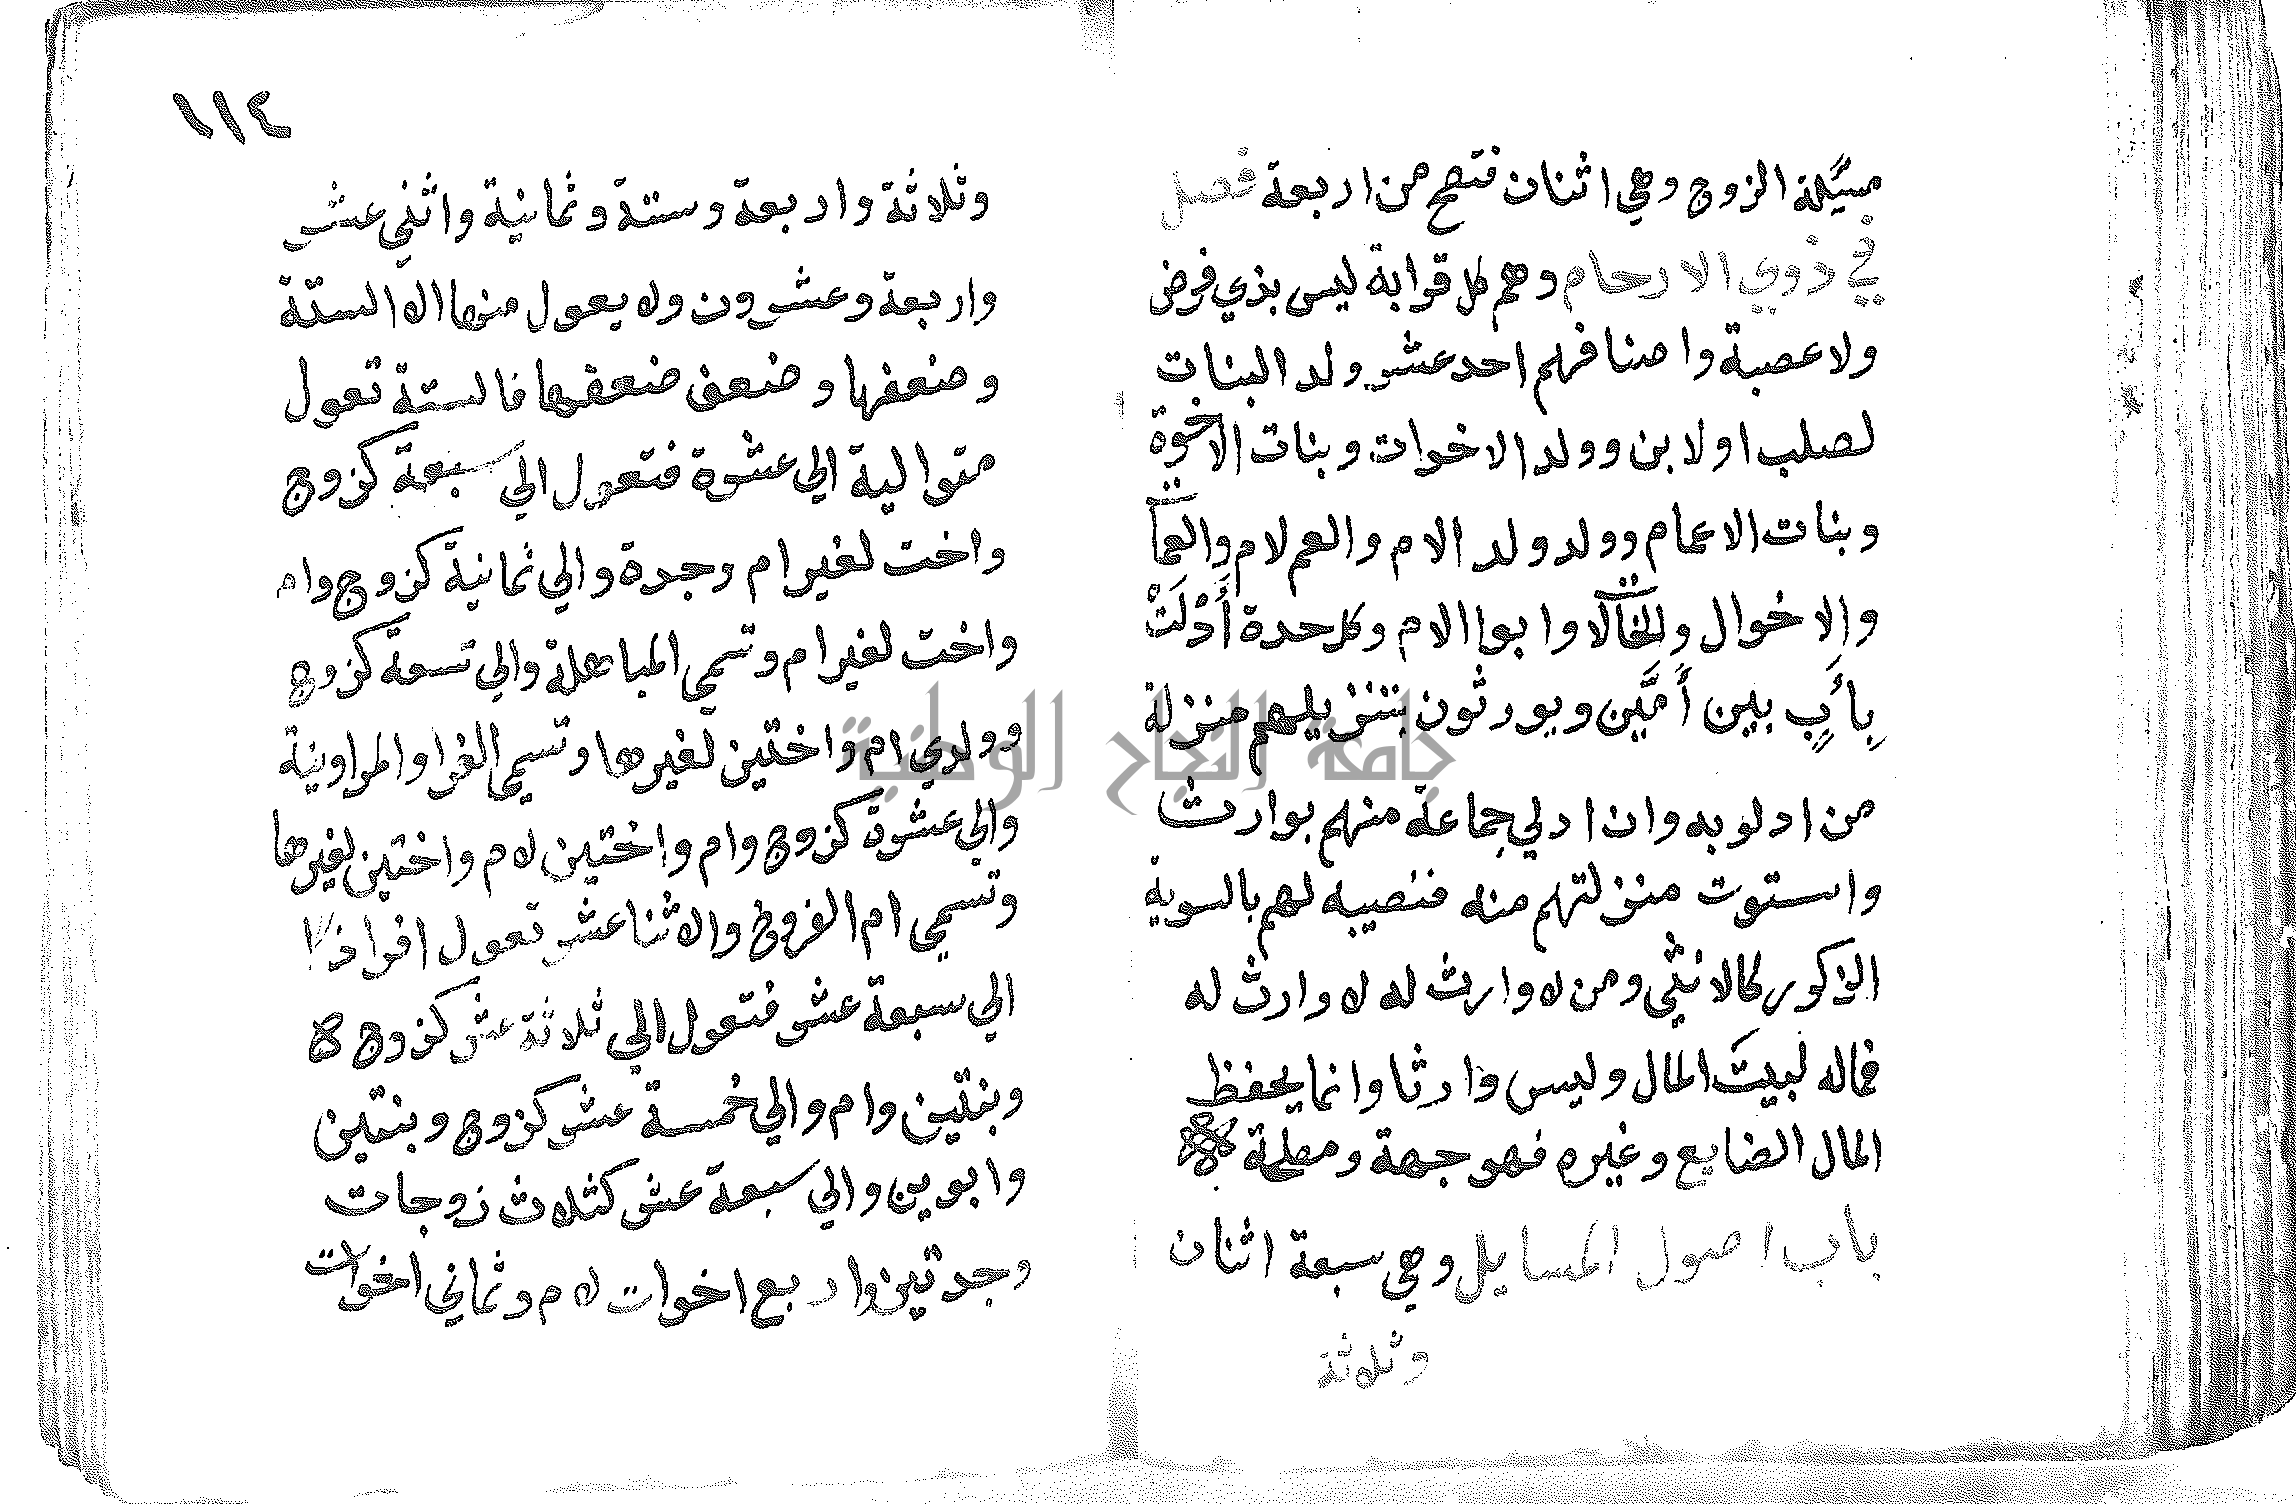 مسئلة الزوج وهي اثنان فتصح من اربعة فصل
في ذوي الارحام وهم كل قرابة ليس بذي فرض
ولا عصبة واصنافهم احد عشر ولد البنات
لصلب او لابن وولد الاخوات وبنات الاخوة
وبنات الاعمام وولد ولد الام والعم لام والعمات
والاخوال والخالات وابوا الام وكل جدة أَدْلَتْ
بِأَبٍ بين أمَّين ويورثون بتنزيلهم منزلة
من ادلو به وان ادلي جماعة منهم بوارث
واستوت منزلتهم منه فنصيبه لهم بالسوية
الذكور كالانثي ومن لا وارث له لا وارث له
فماله لبيت المال وليس وارثا وانما يحفظ
المال الضايع وغيره فهو جهة ومصلحة
باب اصول المسايل وهي سبعة اثنان
وثلاثة
١١٤
وثلاثة واربعة وستة وثمانية واثني عشر
واربعة وعشرون ولا يعول منها الا الستة
وضعفها وضعف ضعفها فالستة تعول
متوالية الي عشرة فتعول الي سبعة كزوج
واخت لغير ام وجدة والي ثمانية كزوج وام
واخت لغير ام وتسمي المباهلة والي تسعة كزوج
وولدي ام واختين لغيرها وتسمي الغرا والمروانية
والي عشرة كزوج وام واختين لام واختين لغيرها
وتسمي ام الفروخ والاثنا عشر تعول افرادا
الي سبعة عشر فتعول الي ثلاثة عشر كزوج
وبنتين وام والي خمسة عشر كزوج وبنتين
وابوين والي سبعة عشر كثلاث زوجات
وجدتين واربع اخوات لام وثماني اخوات
جامعة النجاح الوطنية